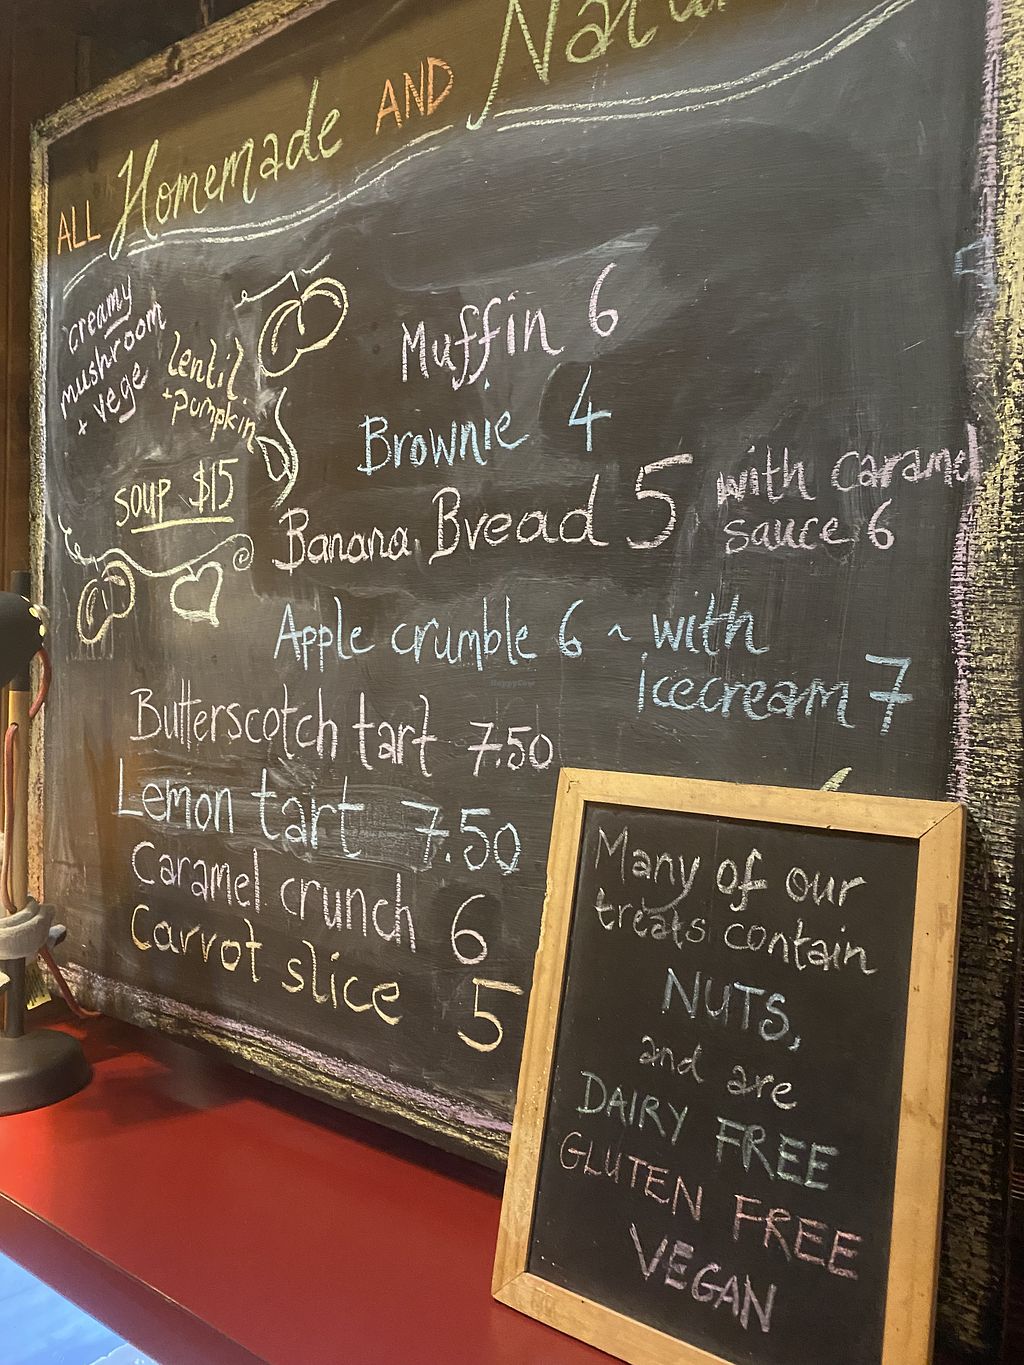 ALL Homemade AND
creamy
mushroom
+ vege
lentil
+ pumpkin
soup $15
Muffin 6
Brownie 4
Banana Bread 5 with caramel
sauce 6
Apple crumble 6 ~ with
icecream 7
Butterscotch tart 7.50
Lemon tart 7.50
Caramel crunch 6
Carrot slice 5
Many of our
treats contain
NUTS,
and are
DAIRY FREE
GLUTEN FREE
VEGAN